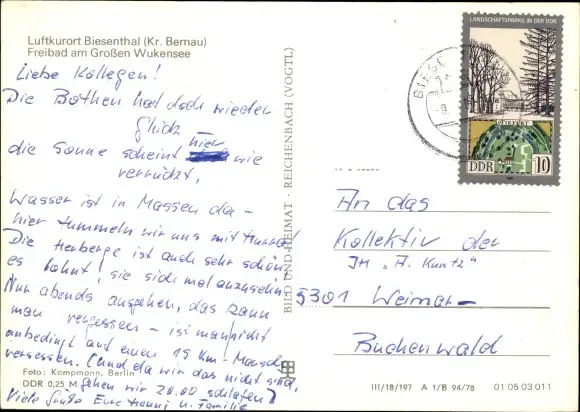 Luftkurort Biesenthal (Kr. Bernau)
Freibad am Großen Wukensee
Liebe Kollegen!
Die Bothen had doch wieder
Glück
die Sonne scheint hier wie
verrückt.
Wasser ist in Massen da –
hier tummeln wir uns mit Hurra!
Die Herberge ist auch sehr schön
es lohnt, sie sich mal anzusehn.
Nur abends ausgehen, das kann
man vergessen – ist man nicht
unbedingt auf einen 15 km-Marsch
versessen. (Und da wir das nicht sind,
gehen wir 20.00 schlafen)
Viele Grüße Eure Hanni u. Familie
Foto: Kampmann, Berlin
DDR 0,25 M
BILD UND HEIMAT · REICHENBACH (VOGTL)
LANDSCHAFTSPARKS IN DER DDR
DDR 10
BIESE
An das
Kollektiv der
JH „A. Kuntz"
5301 Weimar –
Buchenwald
III/18/197 A 1/B 94/78 01 05 03 011